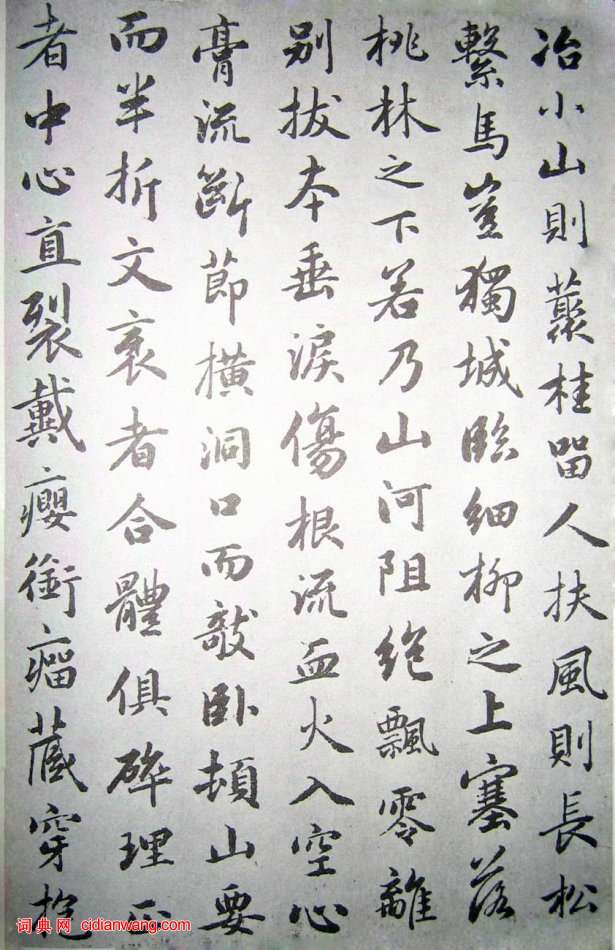 冶小山則藂桂留人扶風則長松
繫馬豈獨城臨細柳之上塞落
桃林之下若乃山河阻絕飄零離
別拔本垂淚傷根流血火入空心
膏流斷節橫洞口而敧卧頓山要
而半折文衺者合體俱碎理正
者中心直裂戴癭銜瘤藏穿抱
词典网 cidianwang.com